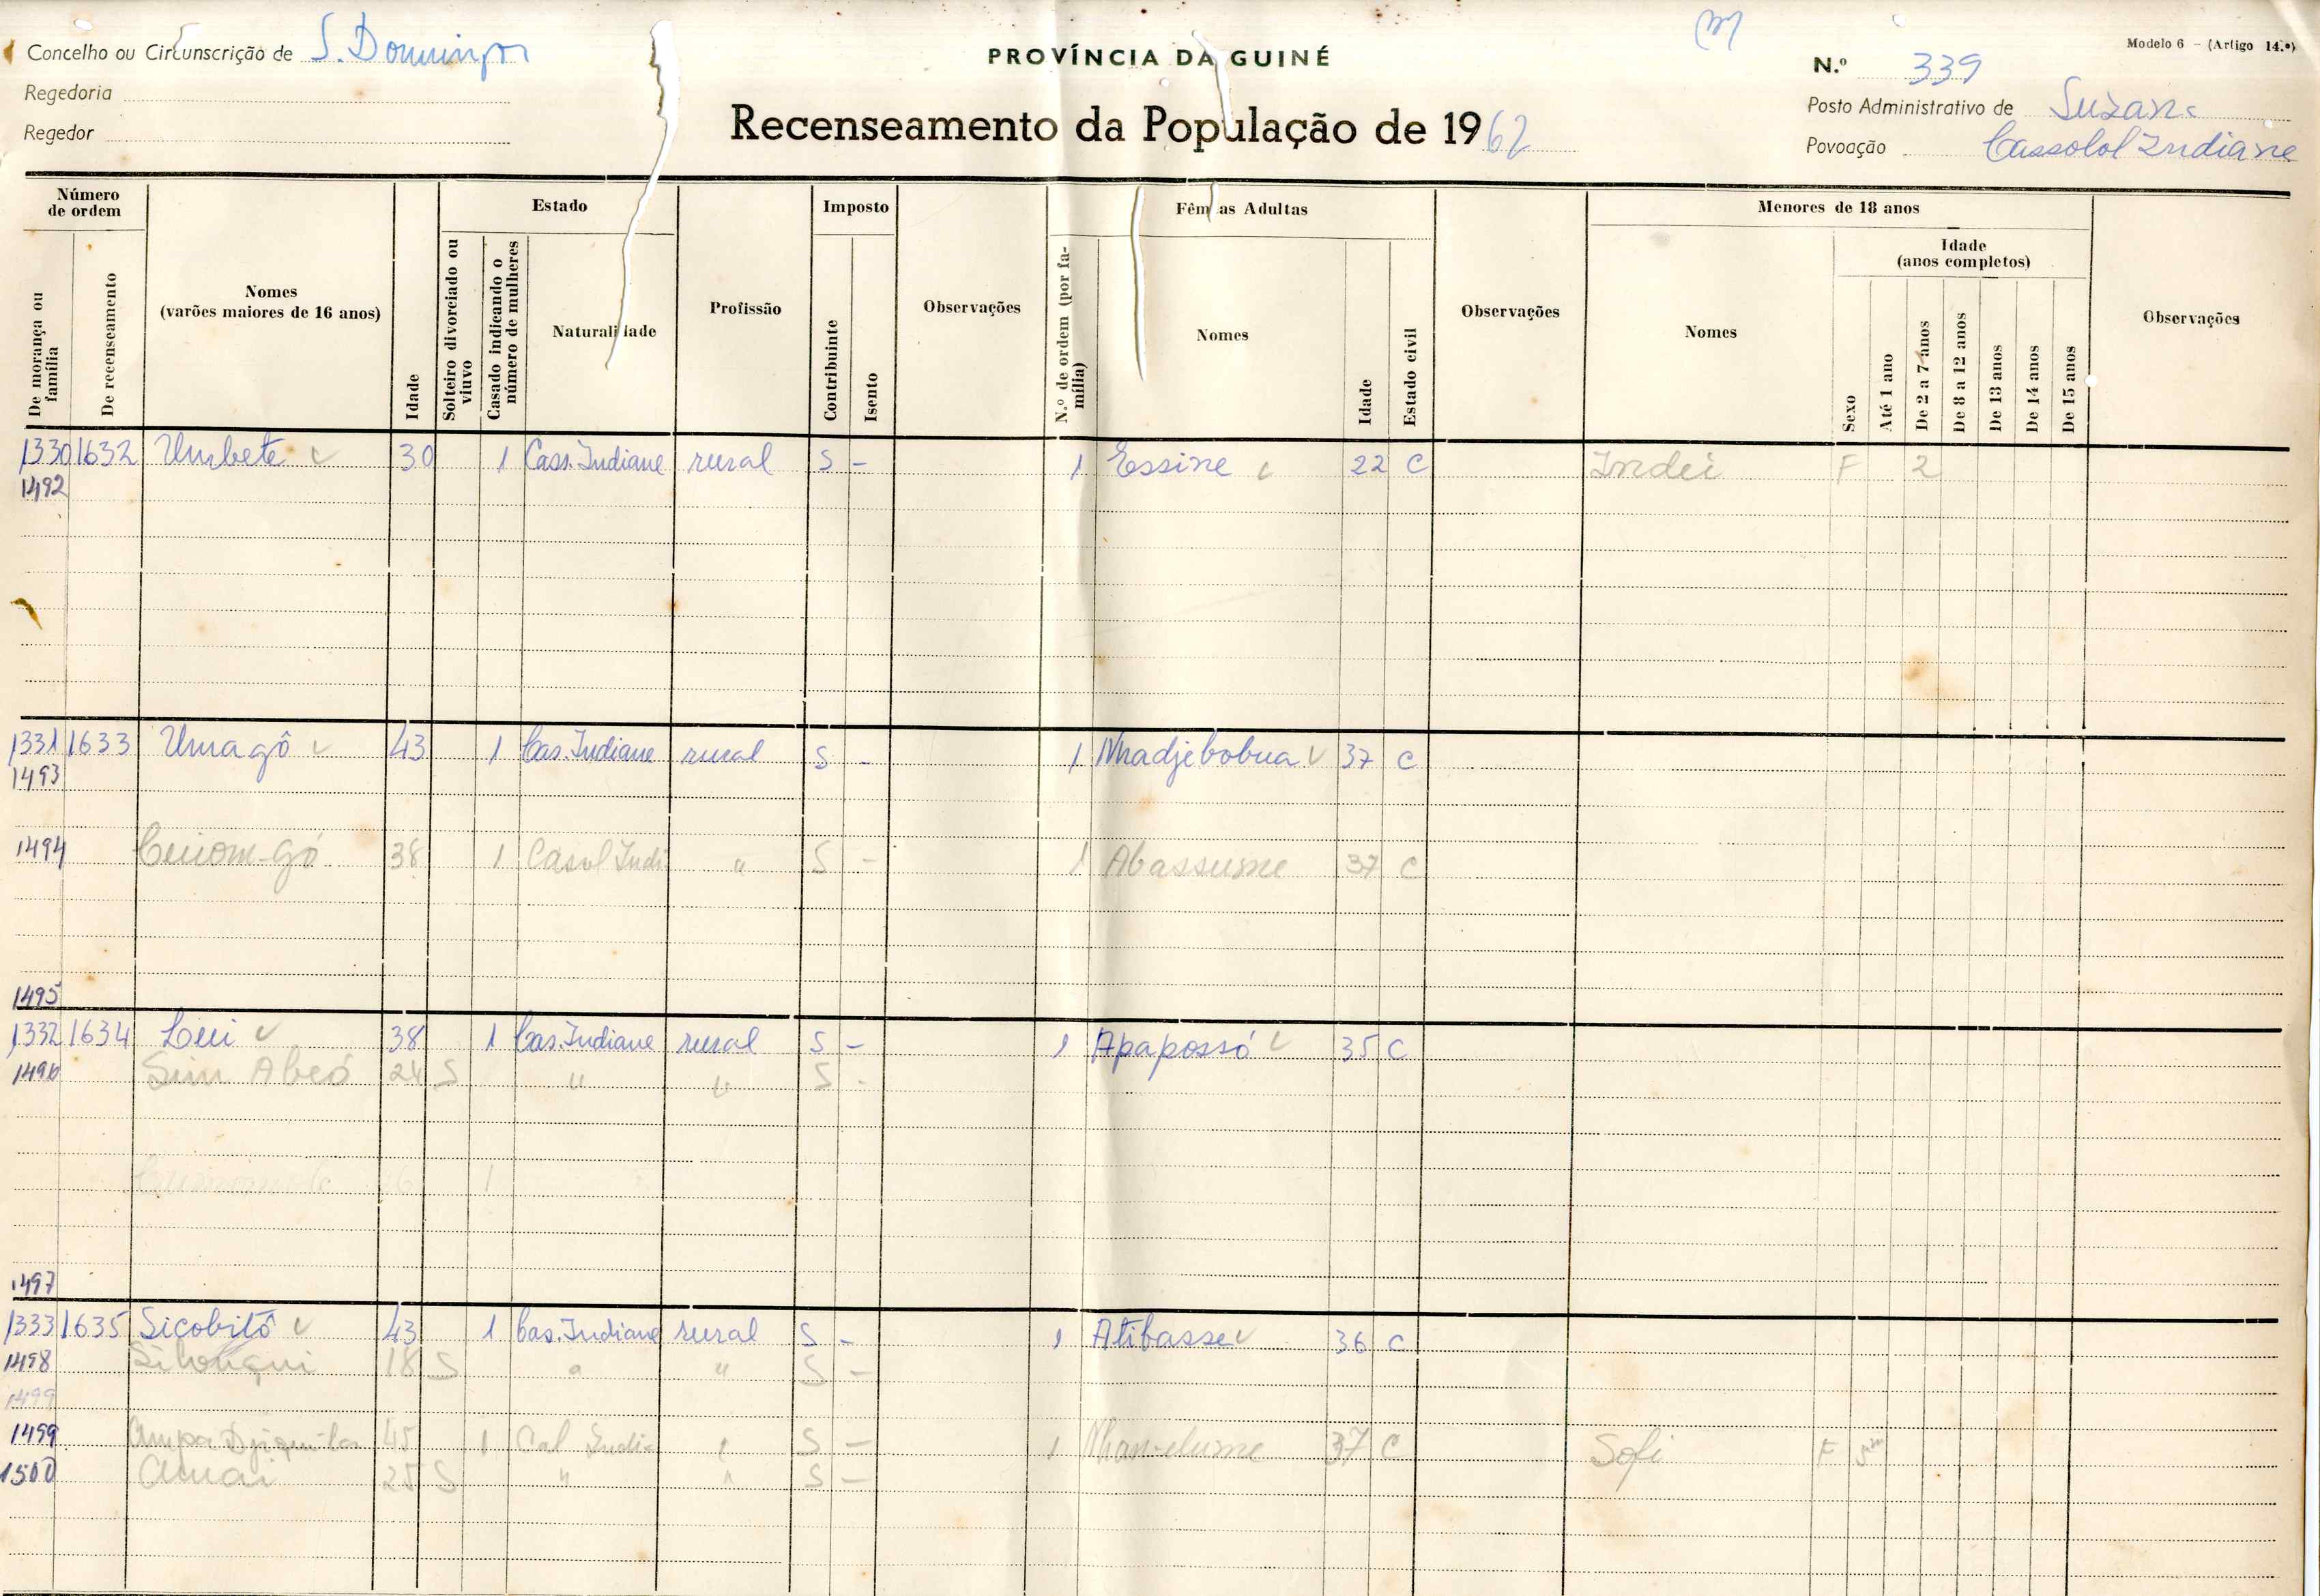 Concelho ou Circunscrição de S. Domingos
Regedoria
Regedor
PROVÍNCIA DA GUINÉ
Recenseamento da População de 1962
Modelo 6 - (Artigo 14.º)
N.º 339
Posto Administrativo de Suzana
Povoação Cassolol Indiane
Número de ordem
De morança ou família
De recenseamento
Nomes
(varões maiores de 16 anos)
Idade
Estado
Solteiro divorciado ou viuvo
Casado indicando o número de mulheres
Naturalidade
Profissão
Imposto
Contribuinte
Isento
Observações
N.º de ordem (por família)
Fêmeas Adultas
Nomes
Idade
Estado civil
Observações
Menores de 18 anos
Nomes
Sexo
Idade
(anos completos)
Até 1 ano
De 2 a 7 anos
De 8 a 12 anos
De 13 anos
De 14 anos
De 15 anos
Observações
1330 1632 Umbete 30 1 Cass. Indiane rural S - 1 Essine 22 C Indei F 2
1492
1331 1633 Umagô 43 1 Cas. Indiane rural S - 1 Nhadjebobua 37 C
1493
1494 38 1 Casol Indi " S - 1 Abassume 37 C
1495
1332 1634 Lui 38 1 Cas. Indiane rural S - 1 Apapossó 35 C
1496 Sim Abeó 24 S " " S -
1
1497
1333 1635 Sicobitô 43 1 Cas. Indiane rural S - 1 Atibasse 36 C
1498 18 S " " S -
1499
1499 Ampa 45 1 Cal Indi S - 1 37 C Sofi F
1500 Amai 25 S " " S -